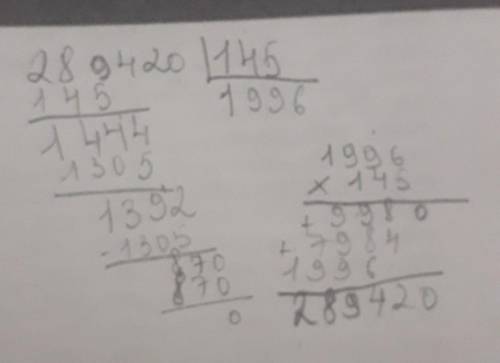 289420 145
145 1996
1444
1305
1392
-1305
870
870
0
1996
× 145
+ 9980
+ 7984
1996
289420